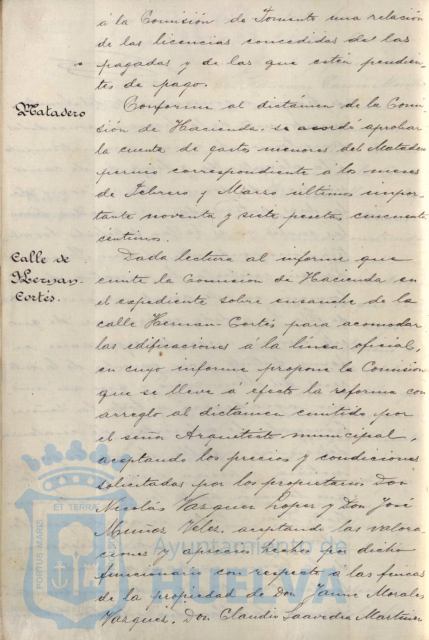 á la Comisión de Fomento una relación
de las licencias concedidas de las
pagadas y de las que estén pendien-
tes de pago.
Matadero
Conforme al dictámen de la Comi-
sión de Hacienda, se acordó aprobar
la cuenta de gastos menores del Matadero
correspondiente á los meses
de Febrero y Marzo últimos impor-
tante noventa y siete pesetas cincuenta
centimos.
Calle de
Hernan-
Cortés.
Dada lectura al informe que
emite la Comisión de Hacienda en
el expediente sobre ensanche de la
calle Hernan-Cortés para acomodar
las edificaciones á la línea oficial,
en cuyo informe propone la Comisión
que se lleve á efecto la reforma con
arreglo al dictámen emitido por
el señor Arquitecto municipal,
aceptando los precios y condiciones
solicitadas por los propietarios Don
Nicolás Vazquez Lopez y Don José
Muñoz Velez, aceptando las valora-
ciones y aprecios hechos por dicho
funcionario con respecto á las fincas
de la propiedad de Don Jaime Morales
Vazquez, Don Claudio Saavedra Martinez
PORTUS MARIS
ET TERRÆ
Ayuntamiento de
HUELVA